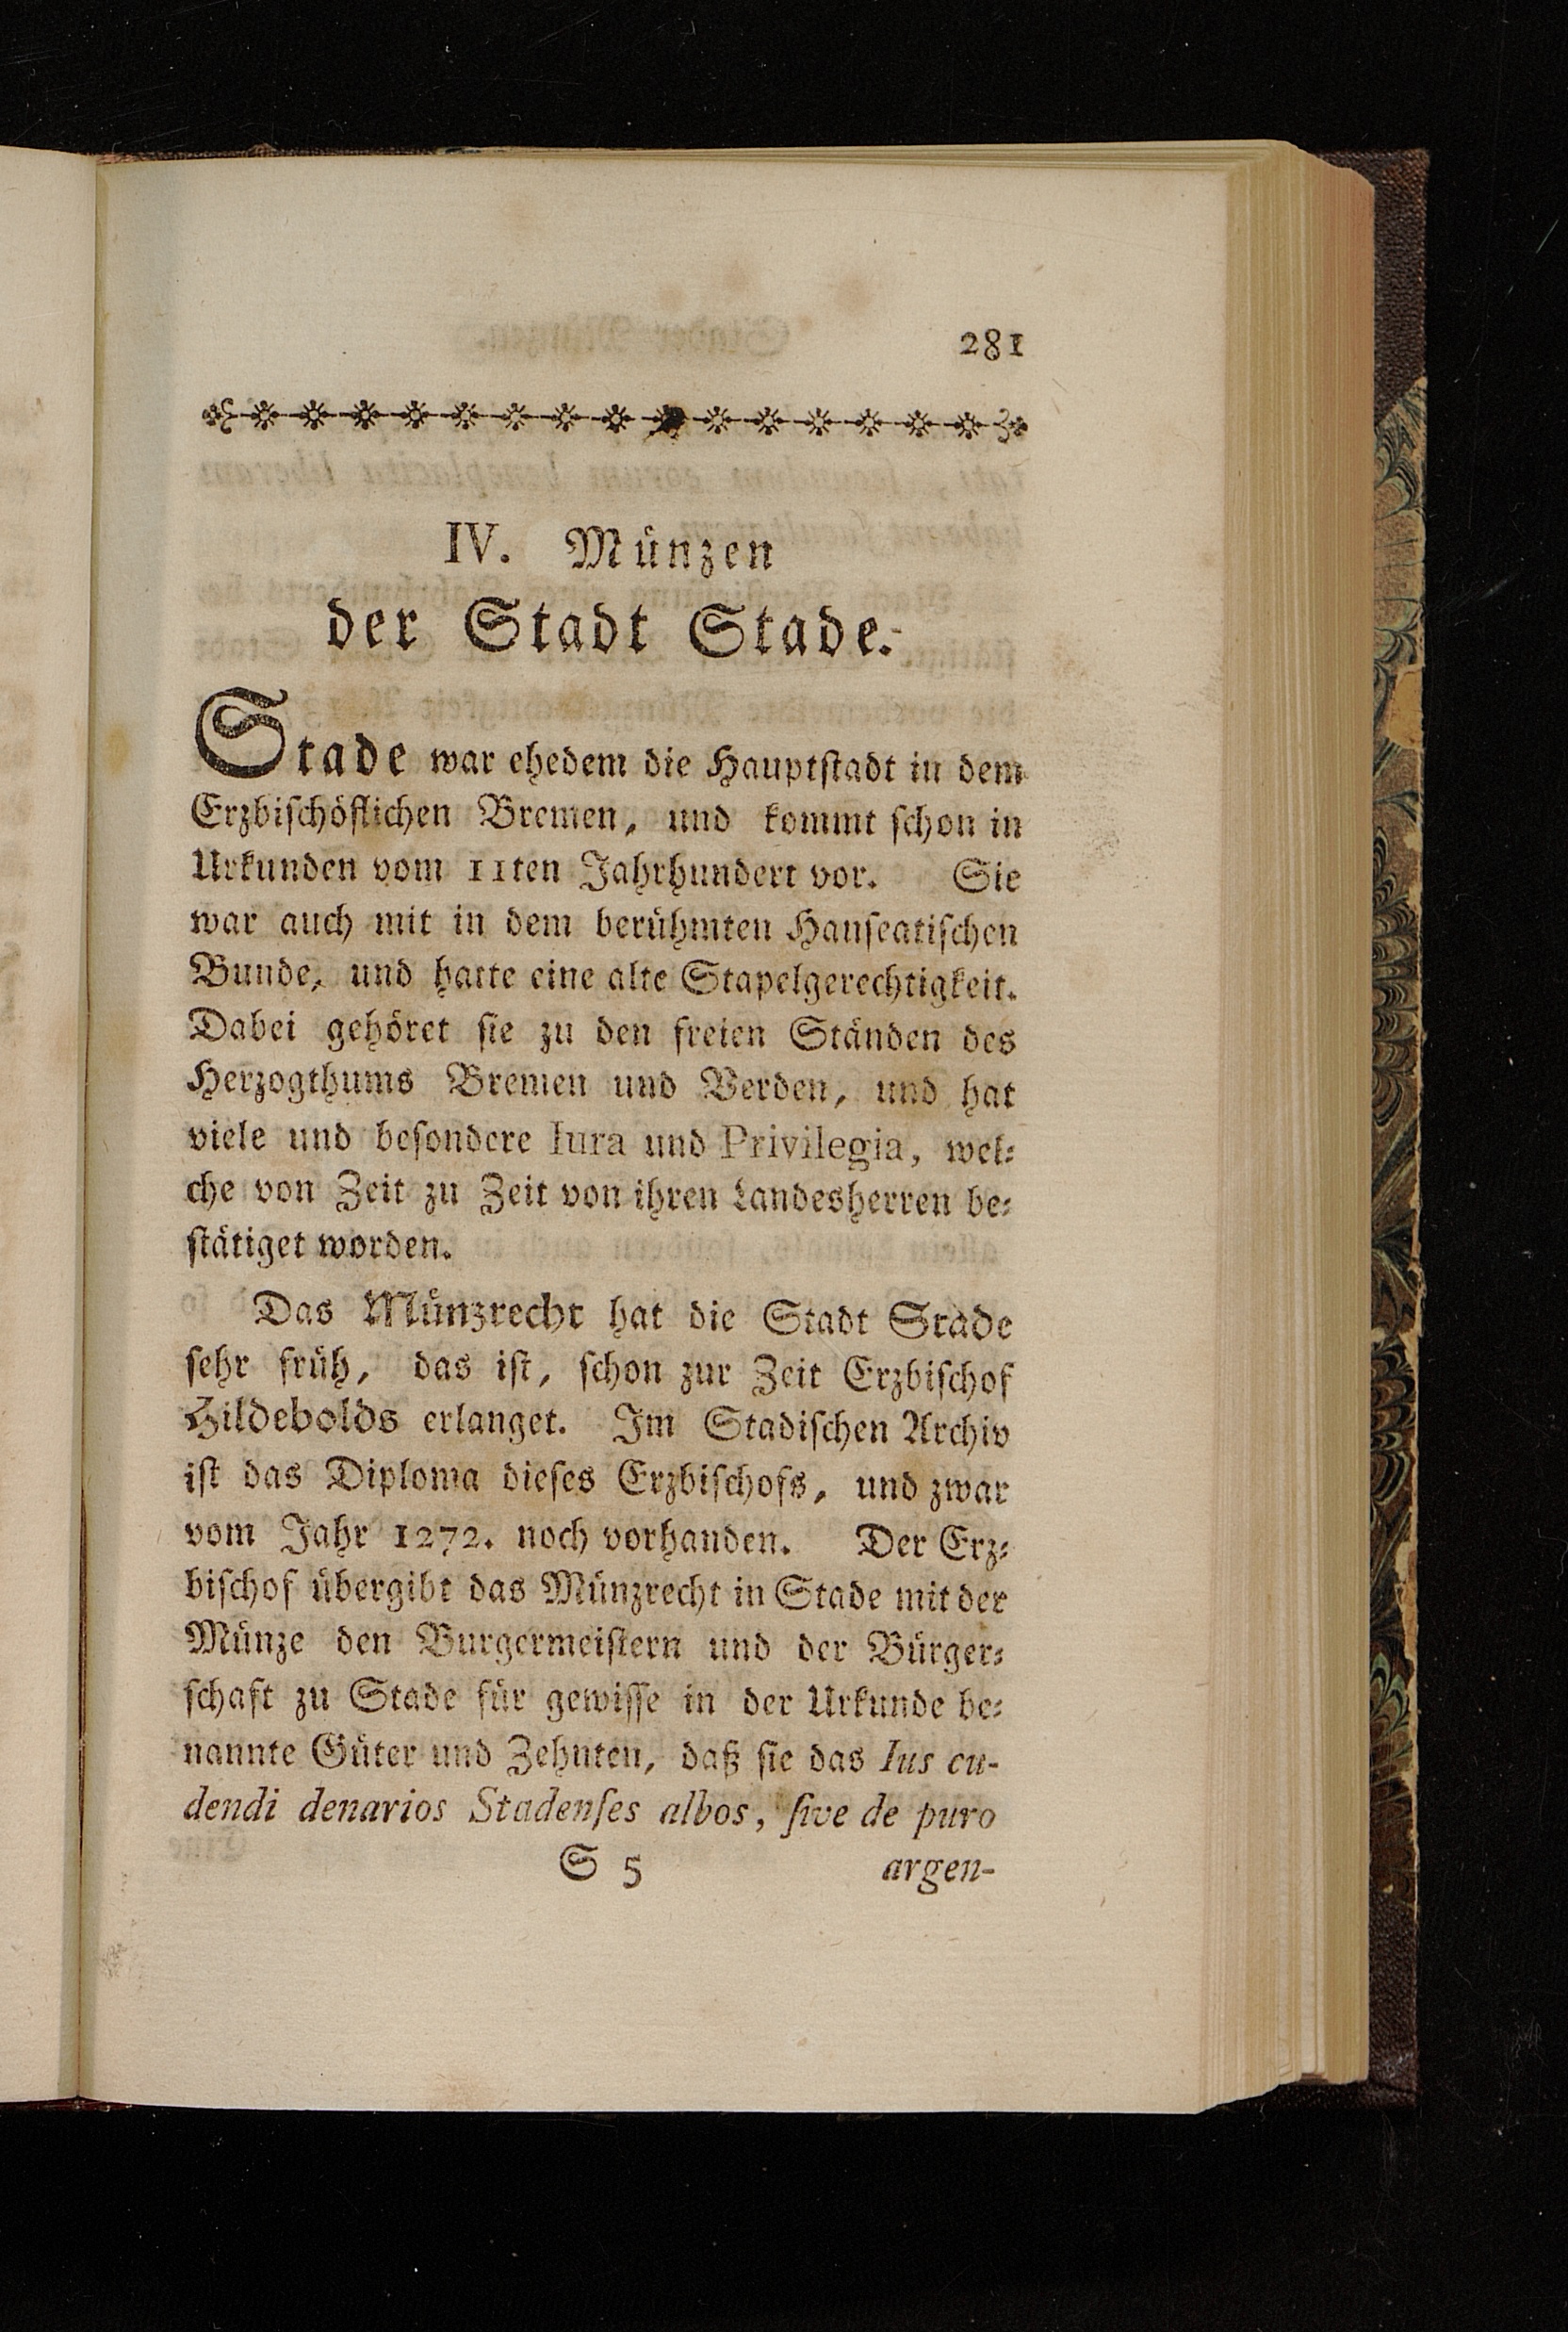 281
IV. Münzen
der Stadt Stade.
Stade war ehedem die Hauptſtadt in dem
Erzbiſchöflichen Bremen, und kommt ſchon in
Urkunden vom 11ten Jahrhundert vor. Sie
war auch mit in dem berühmten Hanſeatiſchen
Bunde, und hatte eine alte Stapelgerechtigkeit.
Dabei gehöret ſie zu den freien Ständen des
Herzogthums Bremen und Verden, und hat
viele und beſondere Iura und Privilegia, wel-
che von Zeit zu Zeit von ihren Landesherren be-
ſtätiget worden.
Das Münzrecht hat die Stadt Stade
ſehr früh, das iſt, ſchon zur Zeit Erzbiſchof
Hildebolds erlanget. Im Stadiſchen Archiv
iſt das Diploma dieſes Erzbiſchofs, und zwar
vom Jahr 1272. noch vorhanden. Der Erz-
biſchof übergibt das Münzrecht in Stade mit der
Münze den Burgermeiſtern und der Bürger-
ſchaft zu Stade für gewiſſe in der Urkunde be-
nannte Güter und Zehnten, daß ſie das Ius cu-
dendi denarios Stadenſes albos, ſive de puro
S 5 argen-